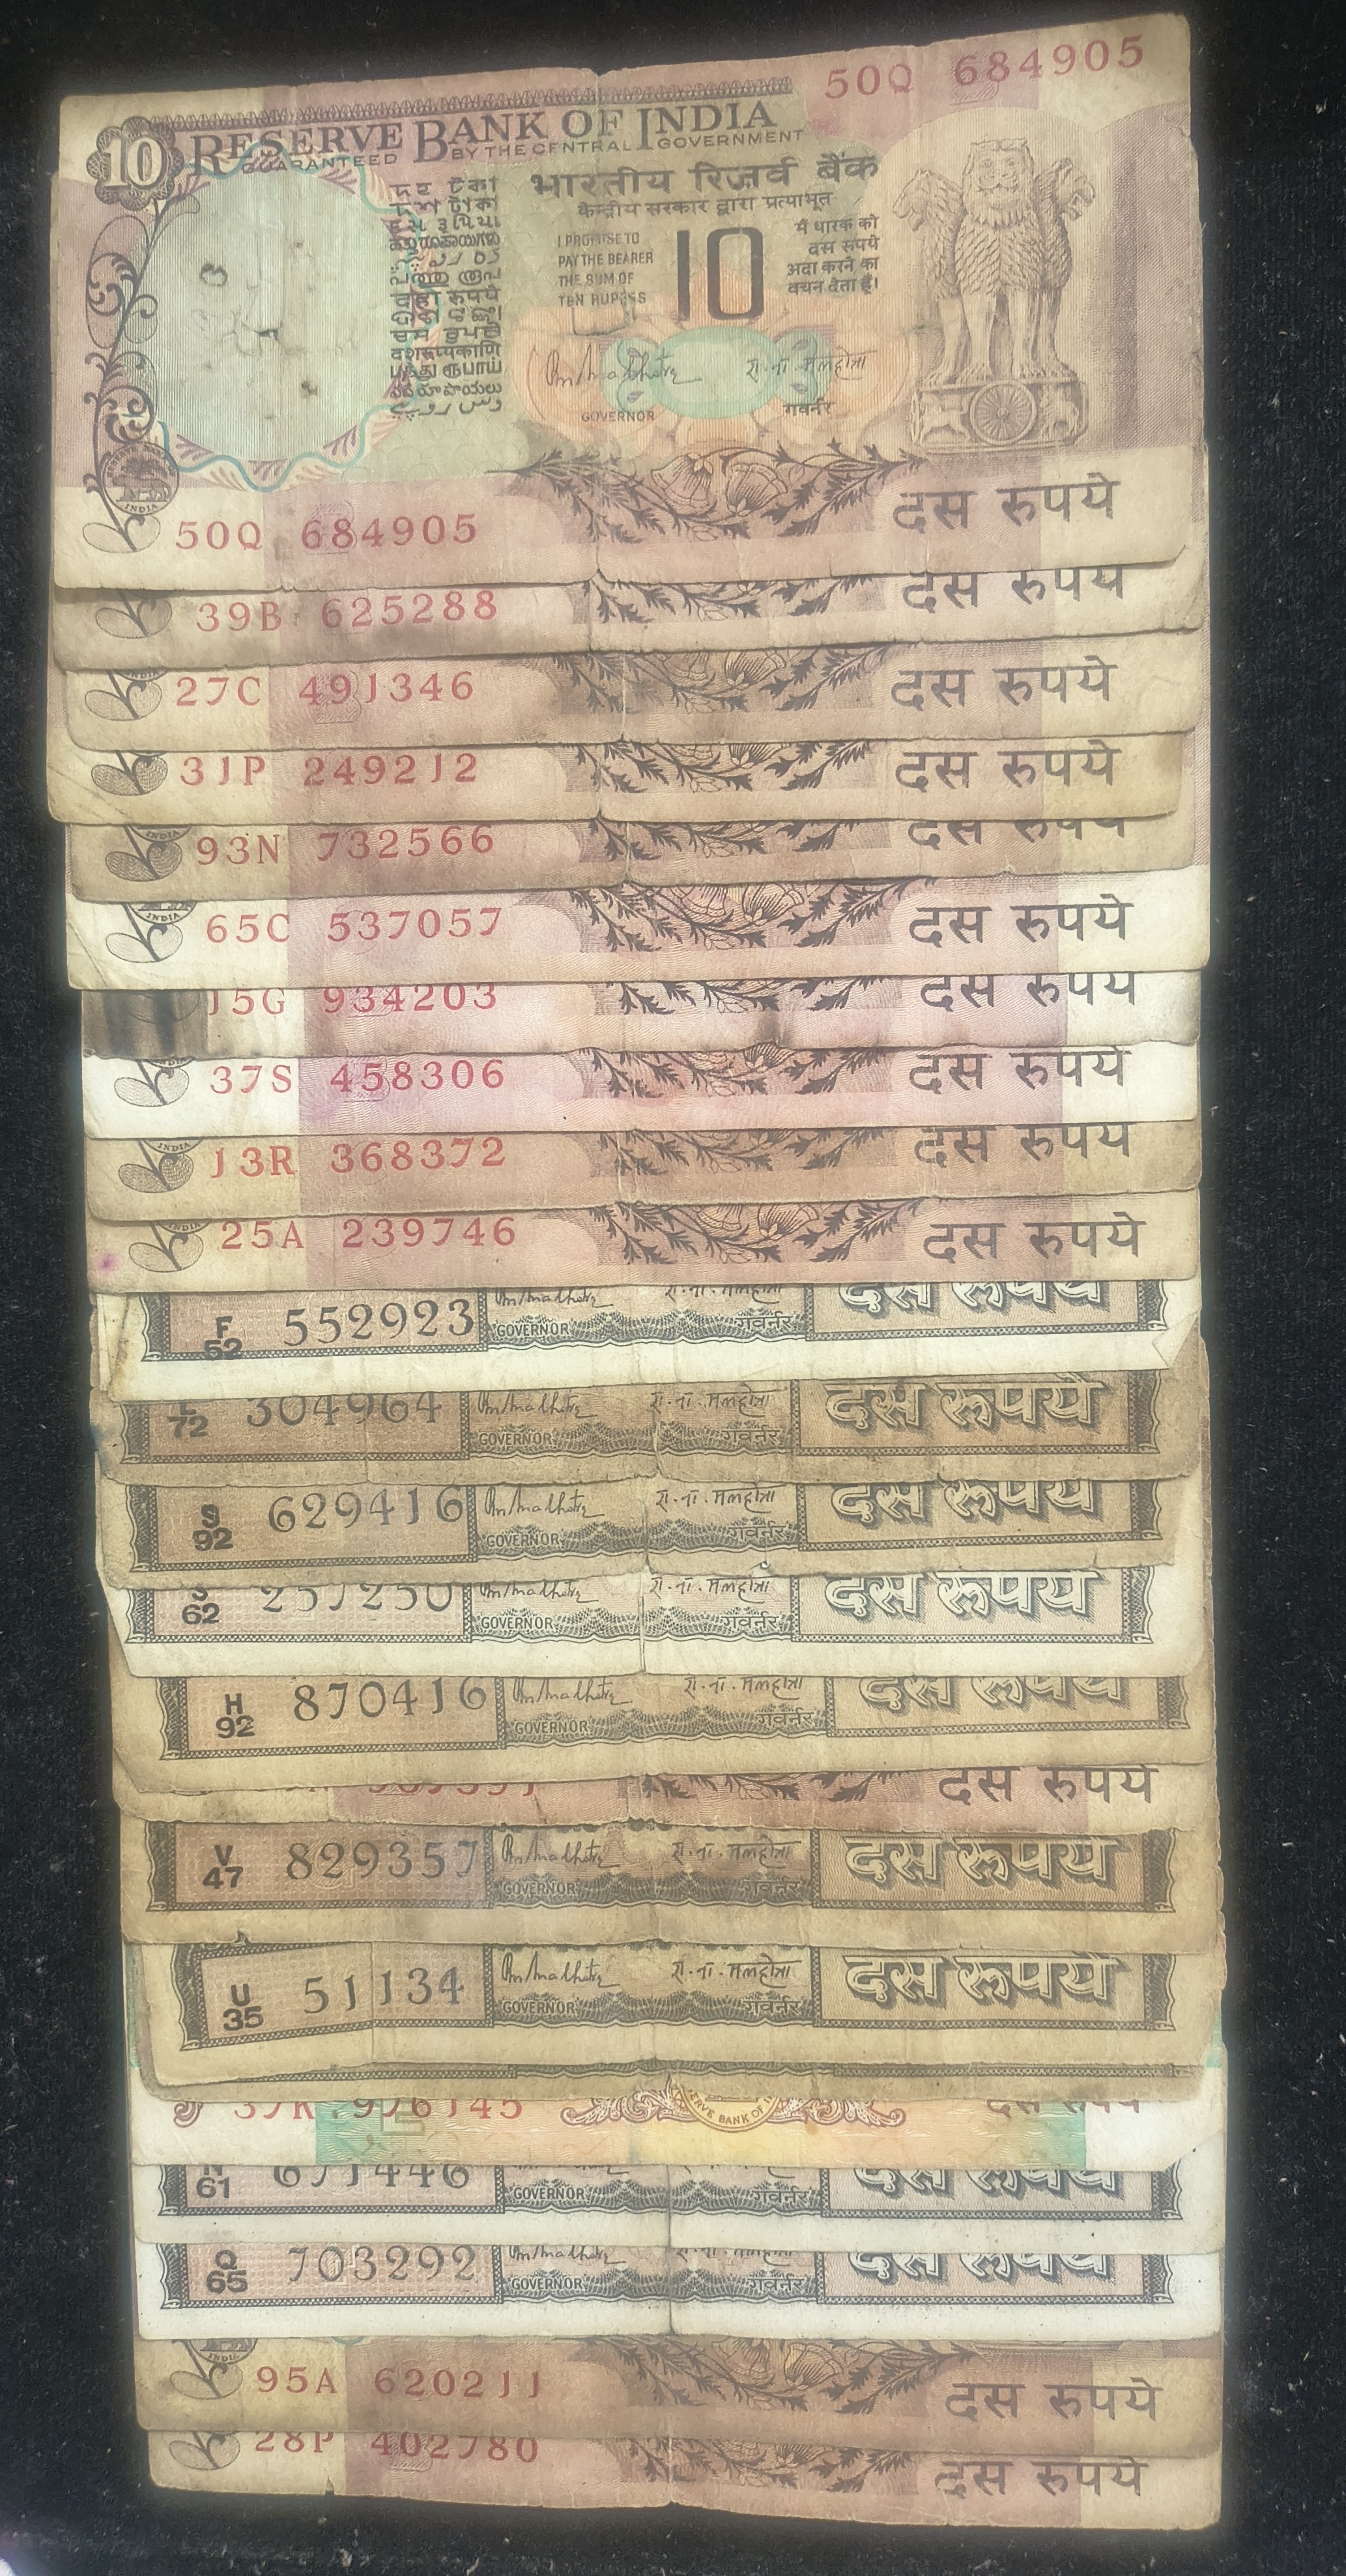 50Q 684905
10 RESERVE BANK OF INDIA
GUARANTEED BY THE CENTRAL GOVERNMENT
भारतीय रिज़र्व बैंक
केन्द्रीय सरकार द्वारा प्रत्याभूत
I PROMISE TO
PAY THE BEARER
THE SUM OF
TEN RUPEES
10
मैं धारक को
दस रुपये
अदा करने का
वचन देता हूँ।
दशरूप्यकाणि
GOVERNOR गवर्नर
INDIA
50Q 684905 दस रुपये
39B 625288 दस रुपये
27C 491346 दस रुपये
31P 249212 दस रुपये
INDIA
93N 732566 दस रुपये
INDIA
65C 537057 दस रुपये
15G 934203 दस रुपये
37S 458306 दस रुपये
INDIA
13R 368372 दस रुपये
25A 239746 दस रुपये
F 52 552923 GOVERNOR गवर्नर दस रूपये
72 304964 रा. ना. मलहोत्रा GOVERNOR गवर्नर दस रूपये
S 92 629416 रा. ना. मलहोत्रा GOVERNOR गवर्नर दस रूपये
62 251250 रा. ना. मलहोत्रा GOVERNOR गवर्नर दस रूपये
H 92 870416 रा. ना. मलहोत्रा GOVERNOR गवर्नर दस रूपये
दस रुपये
V 47 829357 रा. ना. मलहोत्रा GOVERNOR गवर्नर दस रूपये
U 35 51134 रा. ना. मलहोत्रा GOVERNOR गवर्नर दस रूपये
37K 976145 दस रुपये
61 671446 GOVERNOR गवर्नर दस रूपये
Q 65 703292 GOVERNOR गवर्नर दस रूपये
95A 620211 दस रुपये
28P 402780 दस रुपये